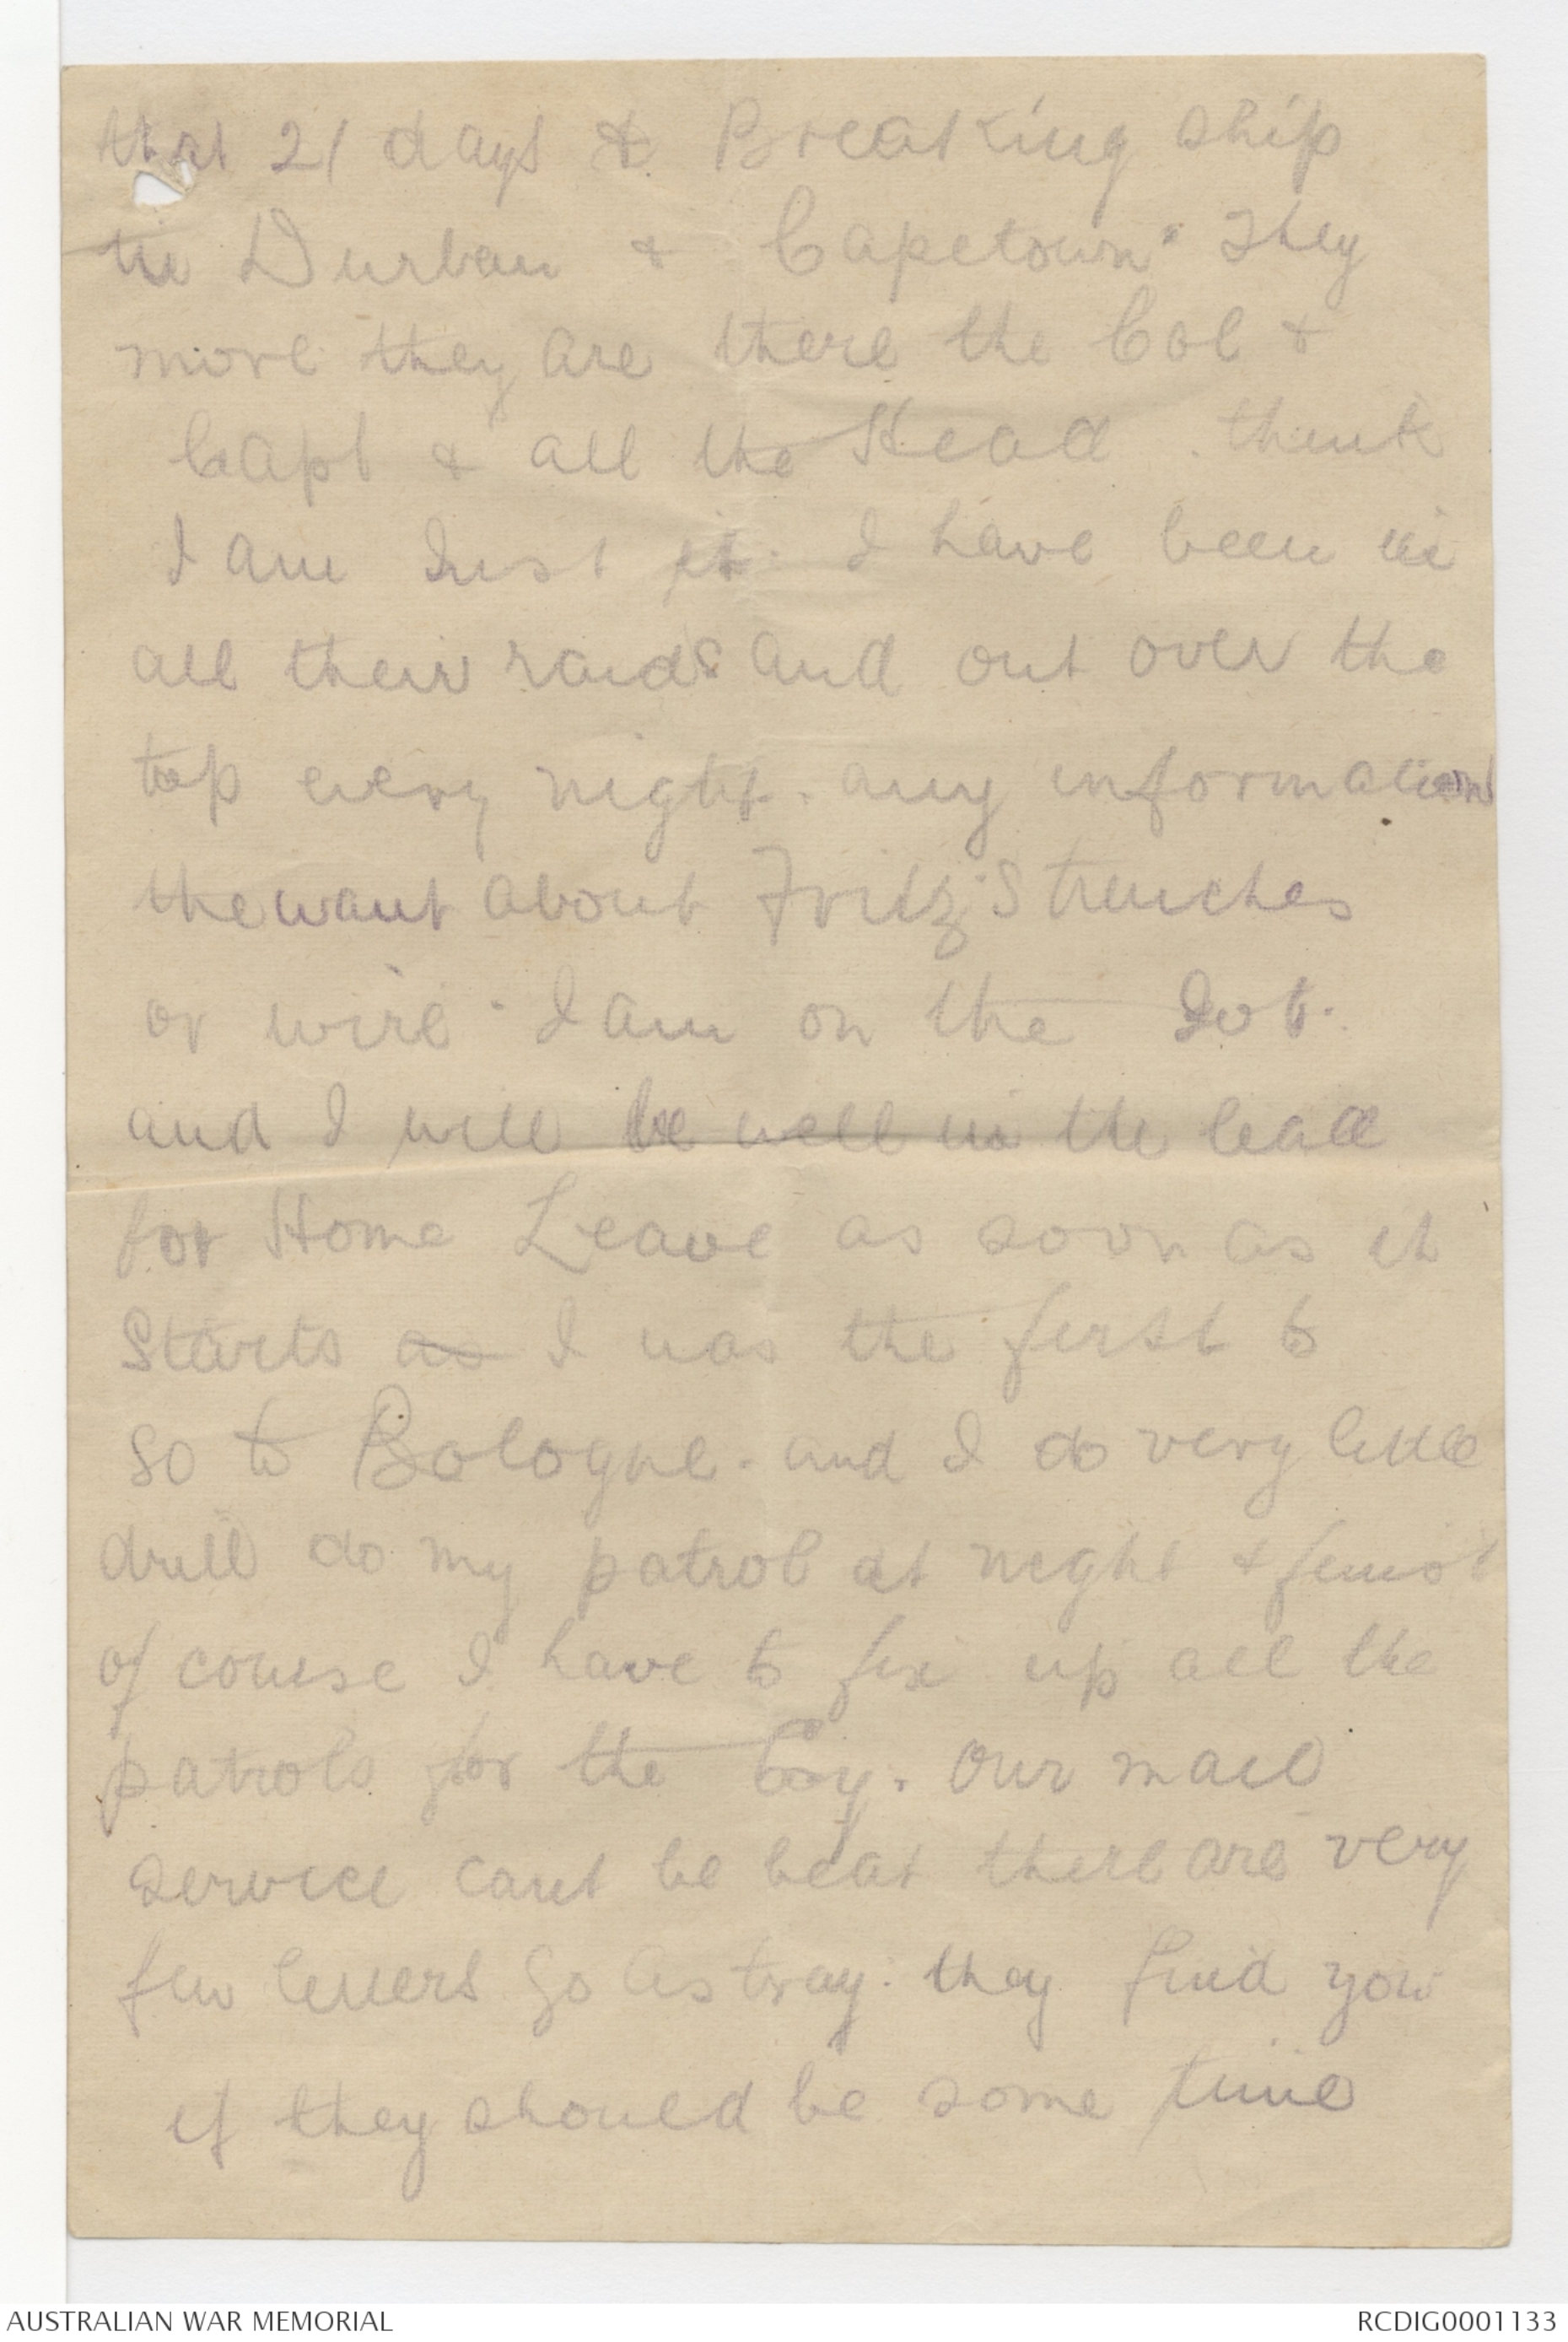 that 21 days & Breaking ship
in Durban & Capetown. They
more they are there the Col &
Capt & all the Head. think
I am Just it. I have been in
all their raids and out over the
top every night. any information
the want about Fritz's trenches
or wire. I am on the Job.
and I will be well in the lead
for Home Leave as soon as it
Starts as I was the first to
go to Bologne. and I do very little
drill do my patrol at night & finish
of course I have to fix up all the
patrols for the Coy. Our mail
service cant be beat there are very
few letters go astray. they find you
if they should be some time
AUSTRALIAN WAR MEMORIAL
RCDIG0001133